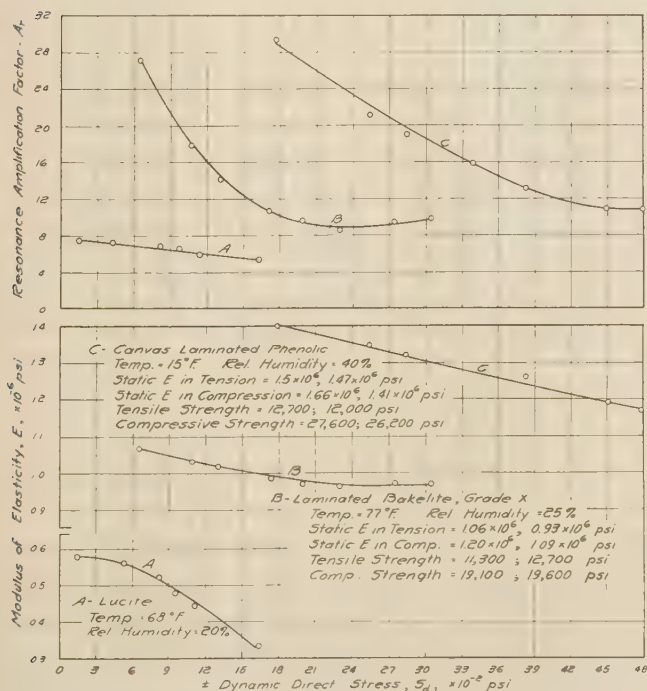 Resonance Amplification Factor - Aᵣ
32
28
24
20
16
12
8
4
0
C
B
A
Modulus of Elasticity, E, ×10⁻⁶ psi
1.4
1.3
1.2
1.1
1.0
0.9
0.6
0.5
0.4
0.3
C - Canvas Laminated Phenolic
Temp. = 75°F. Rel. Humidity = 40%
Static E in Tension = 1.5×10⁶, 1.47×10⁶ psi
Static E in Compression = 1.66×10⁶, 1.41×10⁶ psi
Tensile Strength = 12,700; 12,000 psi
Compressive Strength = 27,600; 26,200 psi
C
B
B - Laminated Bakelite, Grade X
Temp. = 77°F Rel Humidity = 25%
Static E in Tension = 1.06×10⁶, 0.93×10⁶ psi
Static E in Comp. = 1.20×10⁶, 1.09×10⁶ psi
Tensile Strength = 11,300; 12,700 psi
Comp. Strength = 19,100; 19,600 psi
A
A - Lucite
Temp = 68°F
Rel Humidity = 20%
0 3 6 9 12 15 18 21 24 27 30 33 36 39 42 45 48
± Dynamic Direct Stress, S_d, ×10⁻² psi